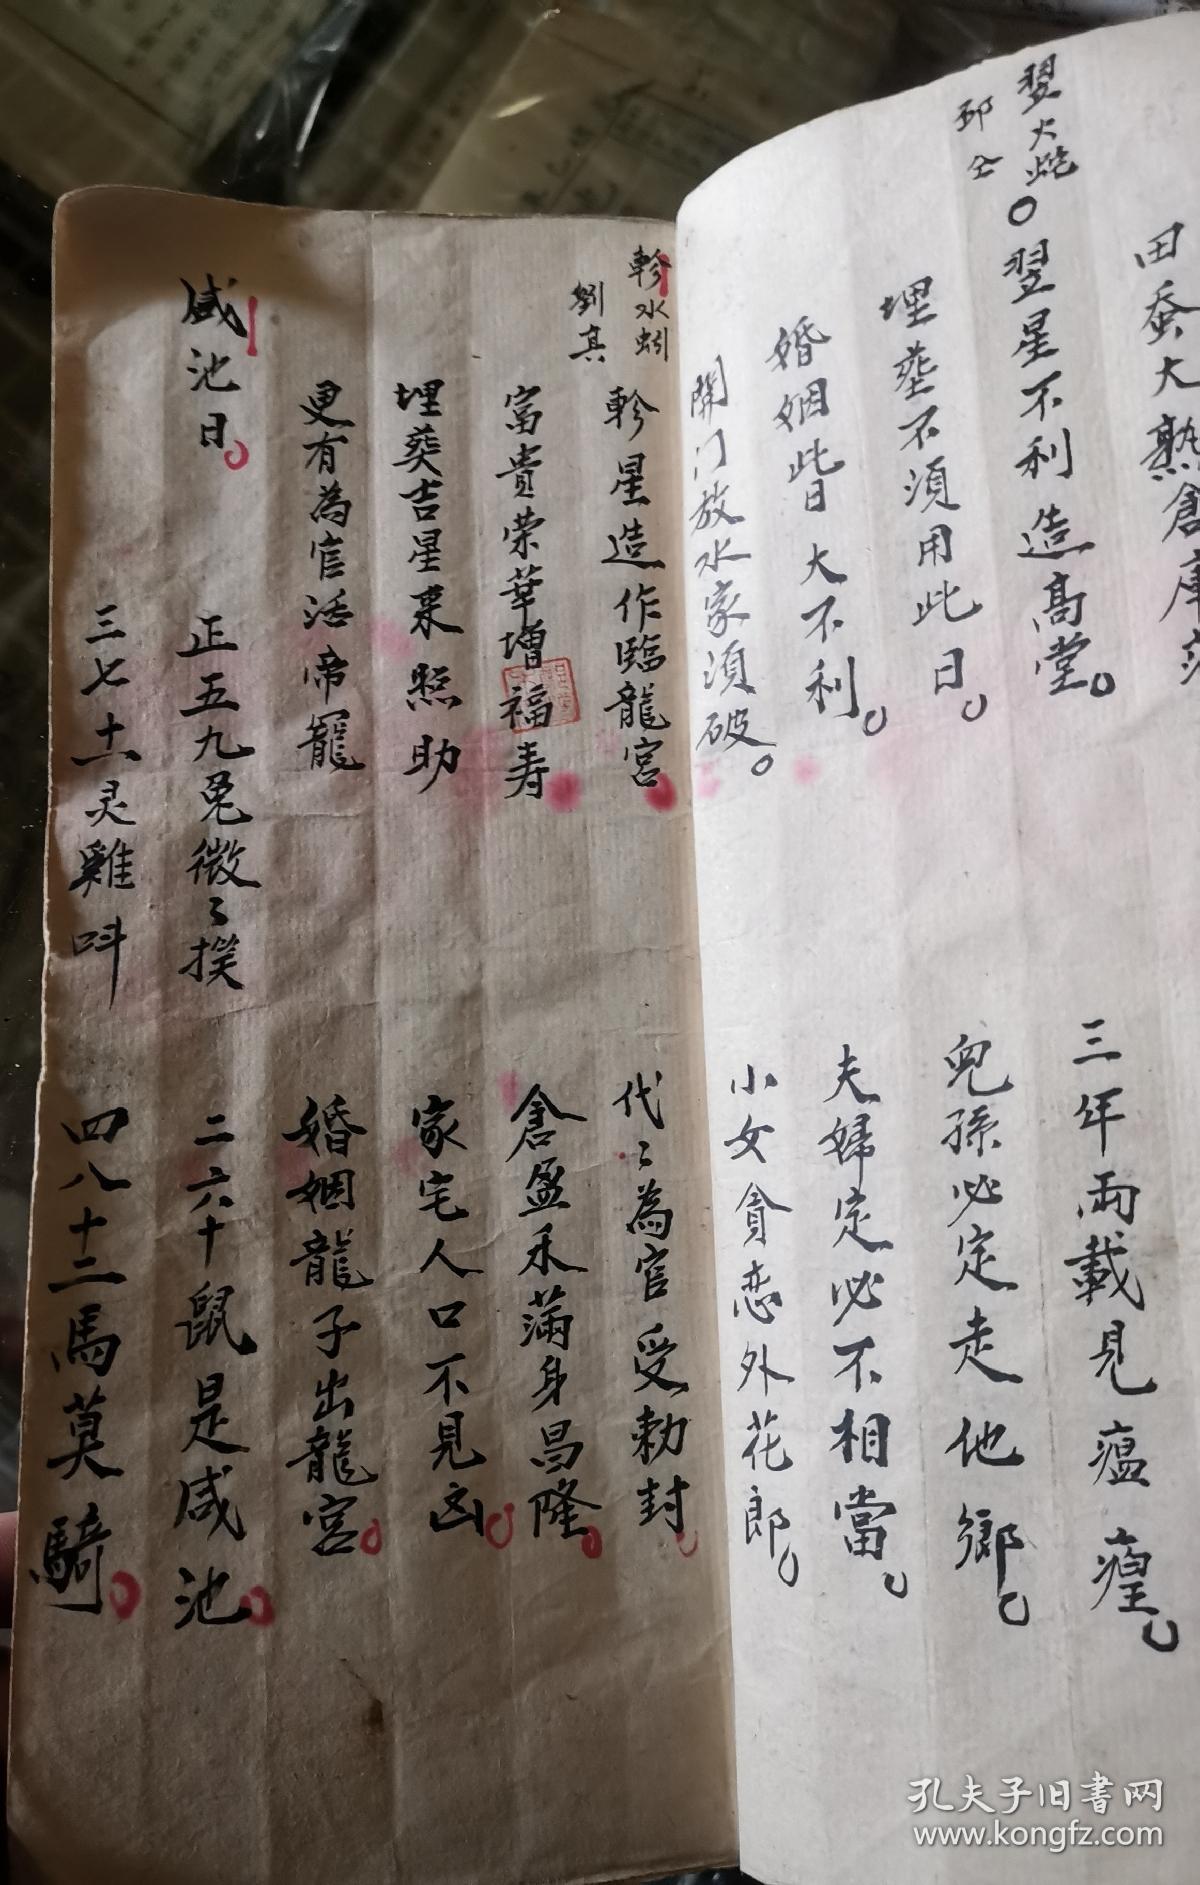 田蚕大熟倉庫
三年兩載見瘟𤶊
翌火蛇
邱仝
翌星不利造高堂
埋葬不須用此日
兒孫必定走他鄉
婚姻此日大不利
夫婦定必不相當
開门放水家須破
小女貪恋外花郎
軫水蚓
劉真
軫星造作臨龍宮
代〻為官受勅封
富貴荣華增福寿
倉盈禾滿身昌隆
埋葵吉星来照助
家宅人口不見凶
更有為官活帝寵
婚姻龍子出龍宮
咸池日
正五九兔微〻撲
二六十鼠是咸池
三七十一灵雞叫
四八十二馬莫騎
孔夫子旧书网
www.kongfz.com